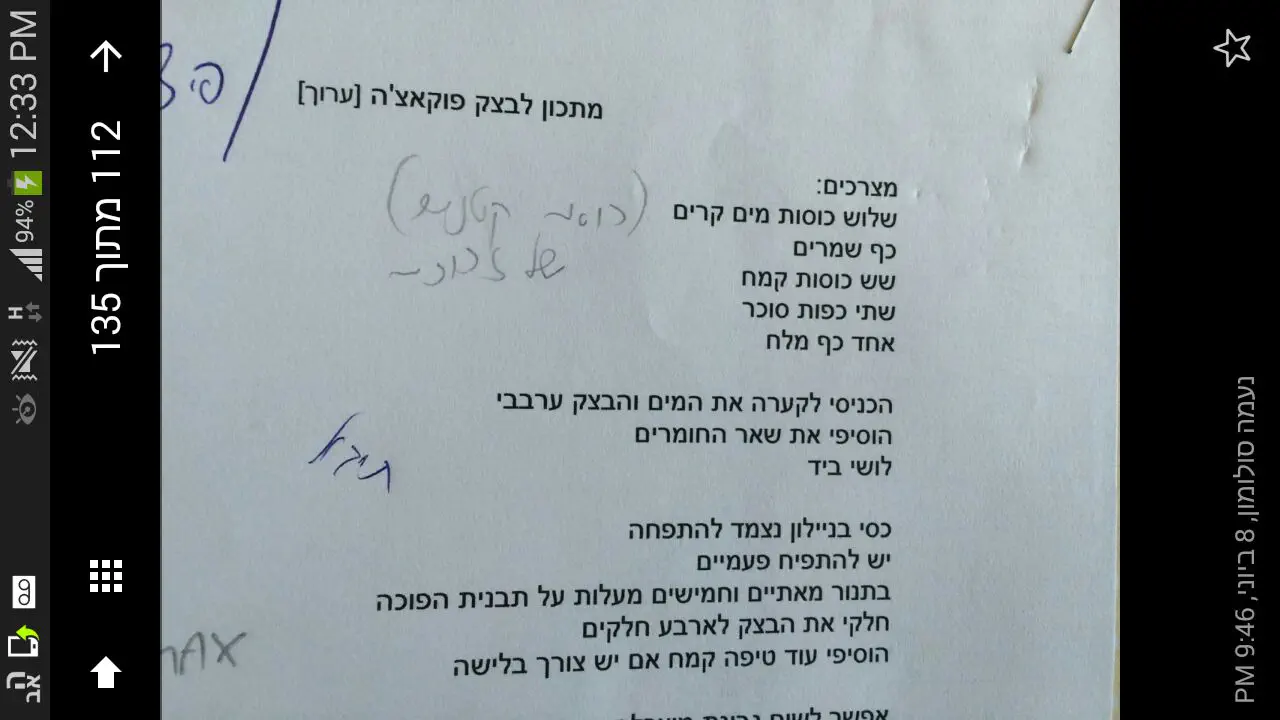 12:33 PM
94%
H
אב
112 מתוך 135
נעמה סולומון, 8 ביוני, 9:46 PM
מתכון לבצק פוקאצ'ה [ערוך]
מצרכים:
שלוש כוסות מים קרים
(כוסות קטנות)
של זכוכית
כף שמרים
שש כוסות קמח
שתי כפות סוכר
אחד כף מלח
הכניסי לקערה את המים והבצק ערבבי
הוסיפי את שאר החומרים
לושי ביד
כסי בניילון נצמד להתפחה
יש להתפיח פעמיים
בתנור מאתיים וחמישים מעלות על תבנית הפוכה
חלקי את הבצק לארבע חלקים
הוסיפי עוד טיפה קמח אם יש צורך בלישה